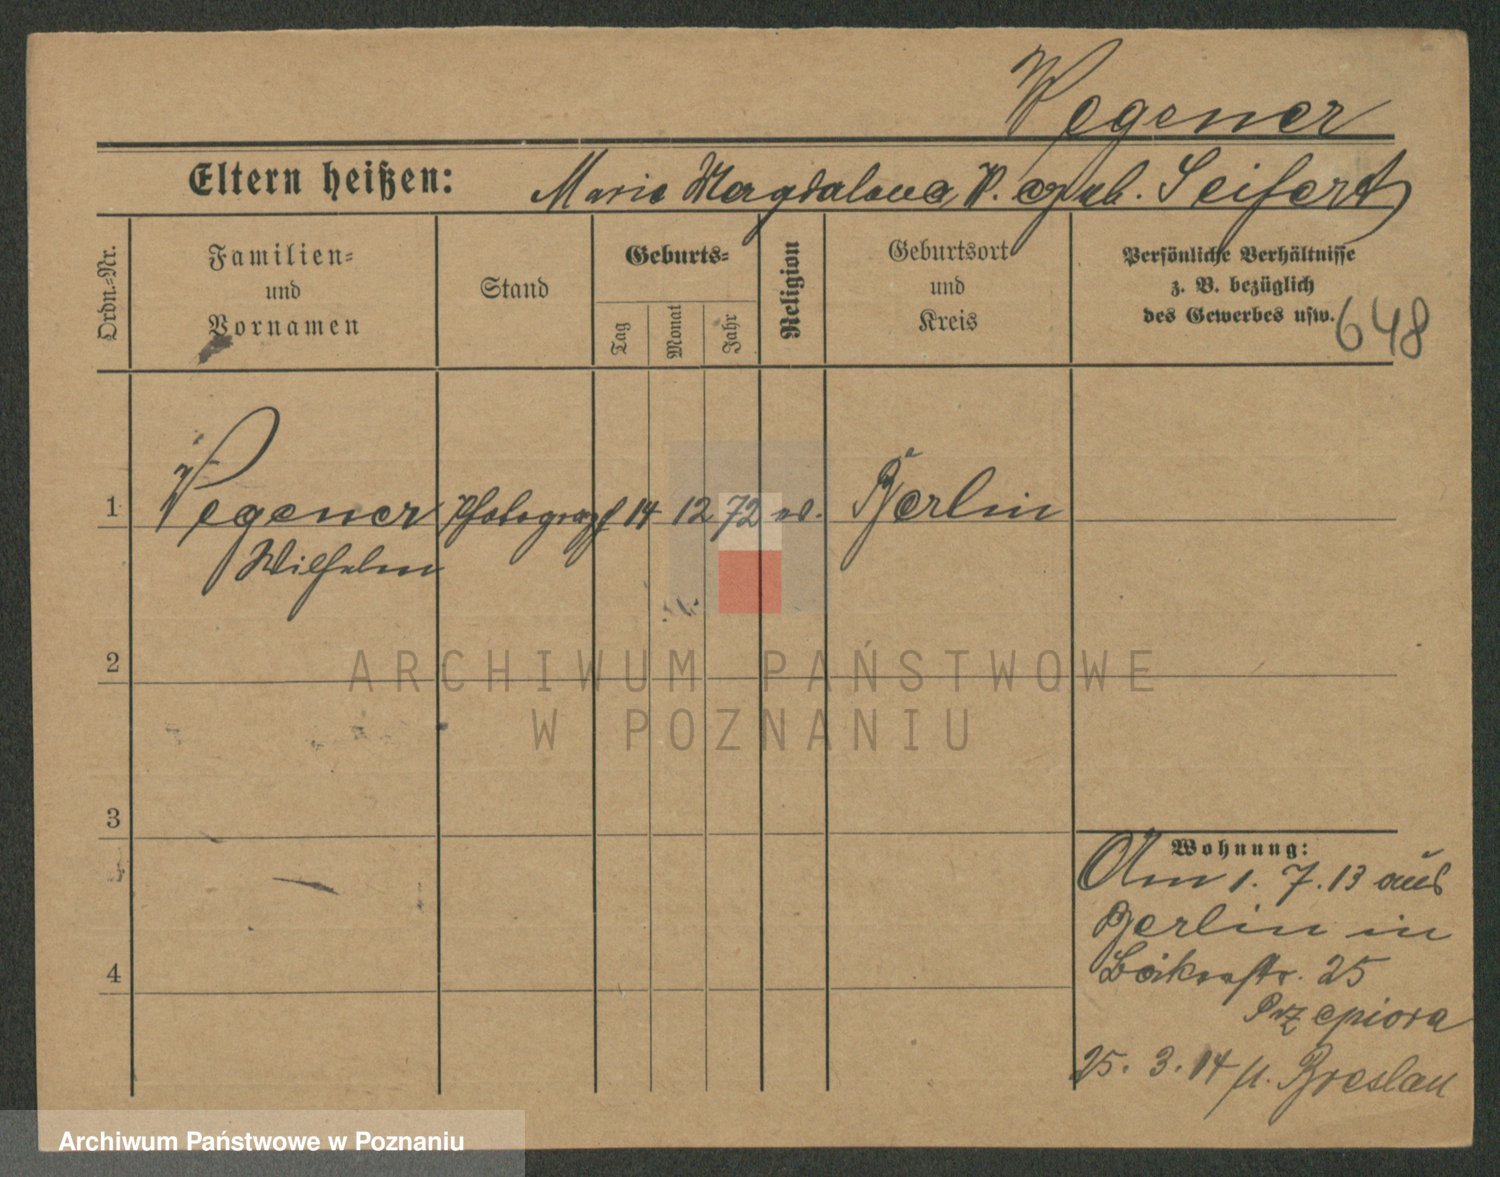 Wegener
Eltern heißen: Marie Magdalena W. geb. Seifert
Ordn.-Nr.
Familien-
und
Vornamen
Stand
Geburts-
Tag
Monat
Jahr
Religion
Geburtsort
und
Kreis
Persönliche Verhältnisse
z. B. bezüglich
des Gewerbes usw.
648
1 Wegener Photograph 14 12 72 ev. Berlin
Wilhelm
2
ARCHIWUM PAŃSTWOWE
W POZNANIU
3
Wohnung:
Am 1. 7. 13 aus
Berlin in
25
Przepiora
4
25. 3. 14 n. Breslau
Archiwum Państwowe w Poznaniu